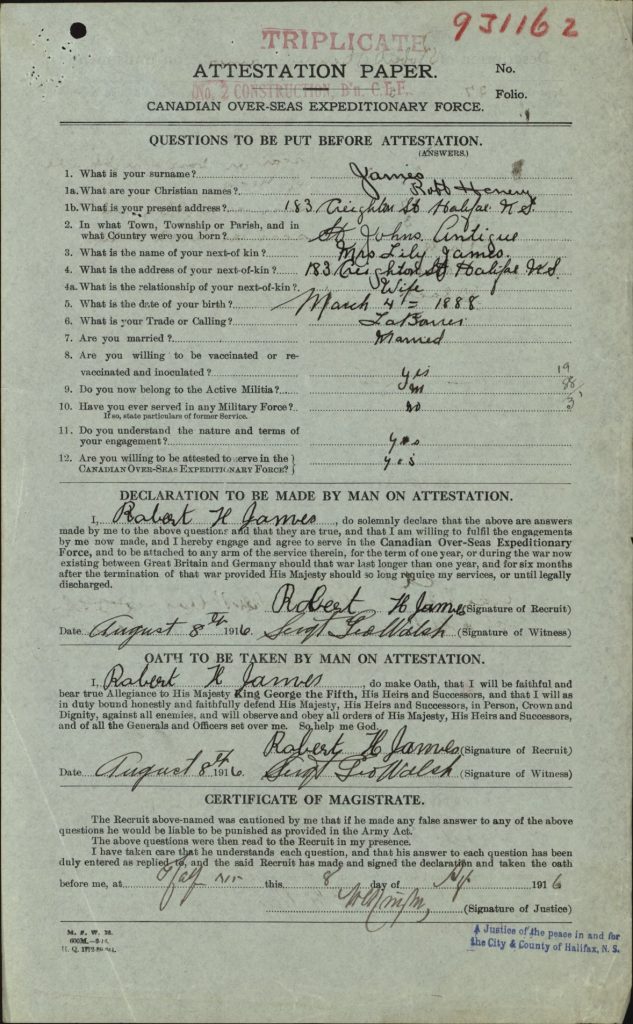 931162
TRIPLICATE
ATTESTATION PAPER.
No.
No. 2 CONSTRUCTION, B'n, C.E.F.
Folio.
CANADIAN OVER-SEAS EXPEDITIONARY FORCE.
QUESTIONS TO BE PUT BEFORE ATTESTATION.
(ANSWERS.)
1. What is your surname? James
1a. What are your Christian names? Robt Henery
1b. What is your present address? 183 Creighton St Halifax N.S.
2. In what Town, Township or Parish, and in
what Country were you born? St Johns Antigue
3. What is the name of your next-of kin? Mrs Lily James
4. What is the address of your next-of-kin? 183 Creighton St Halifax N.S.
4a. What is the relationship of your next-of-kin? Wife
5. What is the date of your birth? March 4 = 1888
6. What is your Trade or Calling?
7. Are you married? Married
8. Are you willing to be vaccinated or re-
vaccinated and inoculated? yes
9. Do you now belong to the Active Militia?
10. Have you ever served in any Military Force? no
If so, state particulars of former Service.
11. Do you understand the nature and terms of
your engagement? yes
12. Are you willing to be attested to serve in the
CANADIAN OVER-SEAS EXPEDITIONARY FORCE? yes
DECLARATION TO BE MADE BY MAN ON ATTESTATION.
I, Robert H James, do solemnly declare that the above are answers
made by me to the above questions and that they are true, and that I am willing to fulfil the engagements
by me now made, and I hereby engage and agree to serve in the Canadian Over-Seas Expeditionary
Force, and to be attached to any arm of the service therein, for the term of one year, or during the war now
existing between Great Britain and Germany should that war last longer than one year, and for six months
after the termination of that war provided His Majesty should so long require my services, or until legally
discharged.
Robert H James (Signature of Recruit)
Date August 8th 1916. Sergt Geo Walsh (Signature of Witness)
OATH TO BE TAKEN BY MAN ON ATTESTATION.
I, Robert H James, do make Oath, that I will be faithful and
bear true Allegiance to His Majesty King George the Fifth, His Heirs and Successors, and that I will as
in duty bound honestly and faithfully defend His Majesty, His Heirs and Successors, in Person, Crown and
Dignity, against all enemies, and will observe and obey all orders of His Majesty, His Heirs and Successors,
and of all the Generals and Officers set over me. So help me God.
Robert H James (Signature of Recruit)
Date August 8th 1916. Sergt Geo Walsh (Signature of Witness)
CERTIFICATE OF MAGISTRATE.
The Recruit above-named was cautioned by me that if he made any false answer to any of the above
questions he would be liable to be punished as provided in the Army Act.
The above questions were then read to the Recruit in my presence.
I have taken care that he understands each question, and that his answer to each question has been
duly entered as replied to, and the said Recruit has made and signed the declaration and taken the oath
before me, at this 8 day of 1916
(Signature of Justice)
M. F. W. 23.
A Justice of the peace in and for
the City & County of Halifax, N. S.